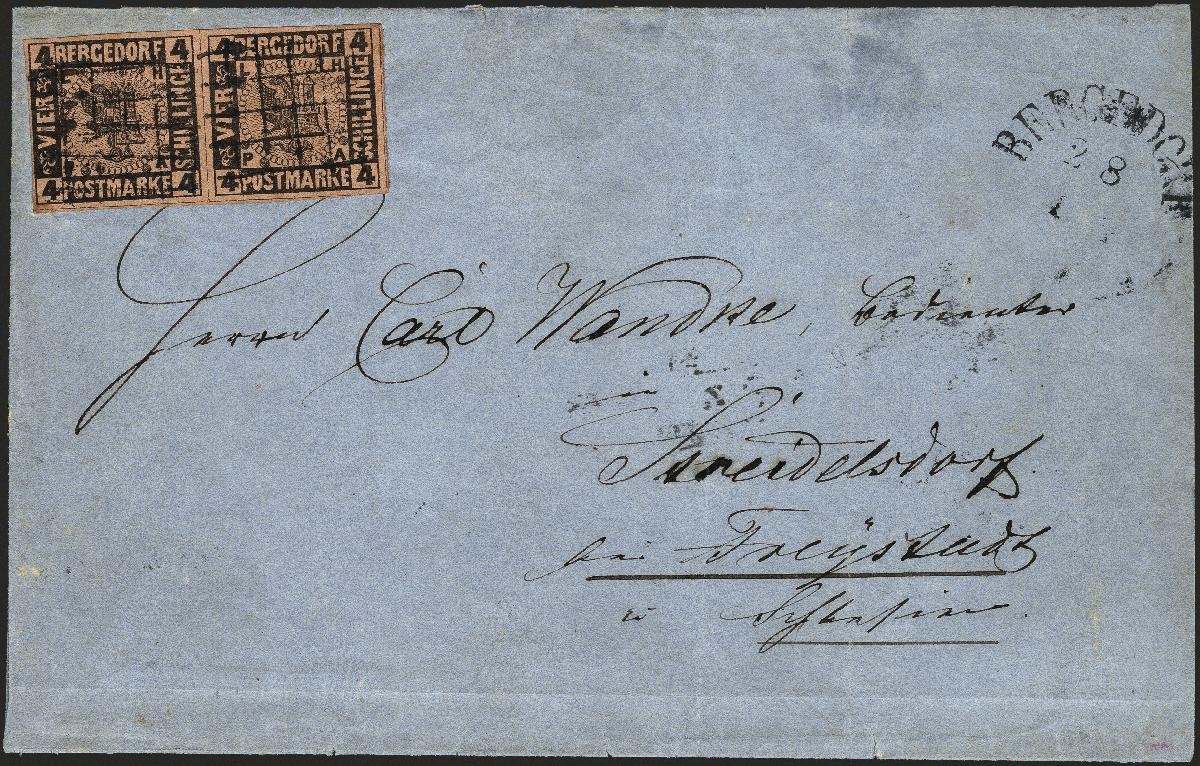 4 BERGEDORF 4
VIER
SCHILLINGE
4 POSTMARKE 4
4 BERGEDORF 4
L H
VIER
SCHILLINGE
P A
4 POSTMARKE 4
BERGEDORF
2 8
Herrn Carl Wandke, Bedienter
in
bei Freÿstadt
in Schlesien